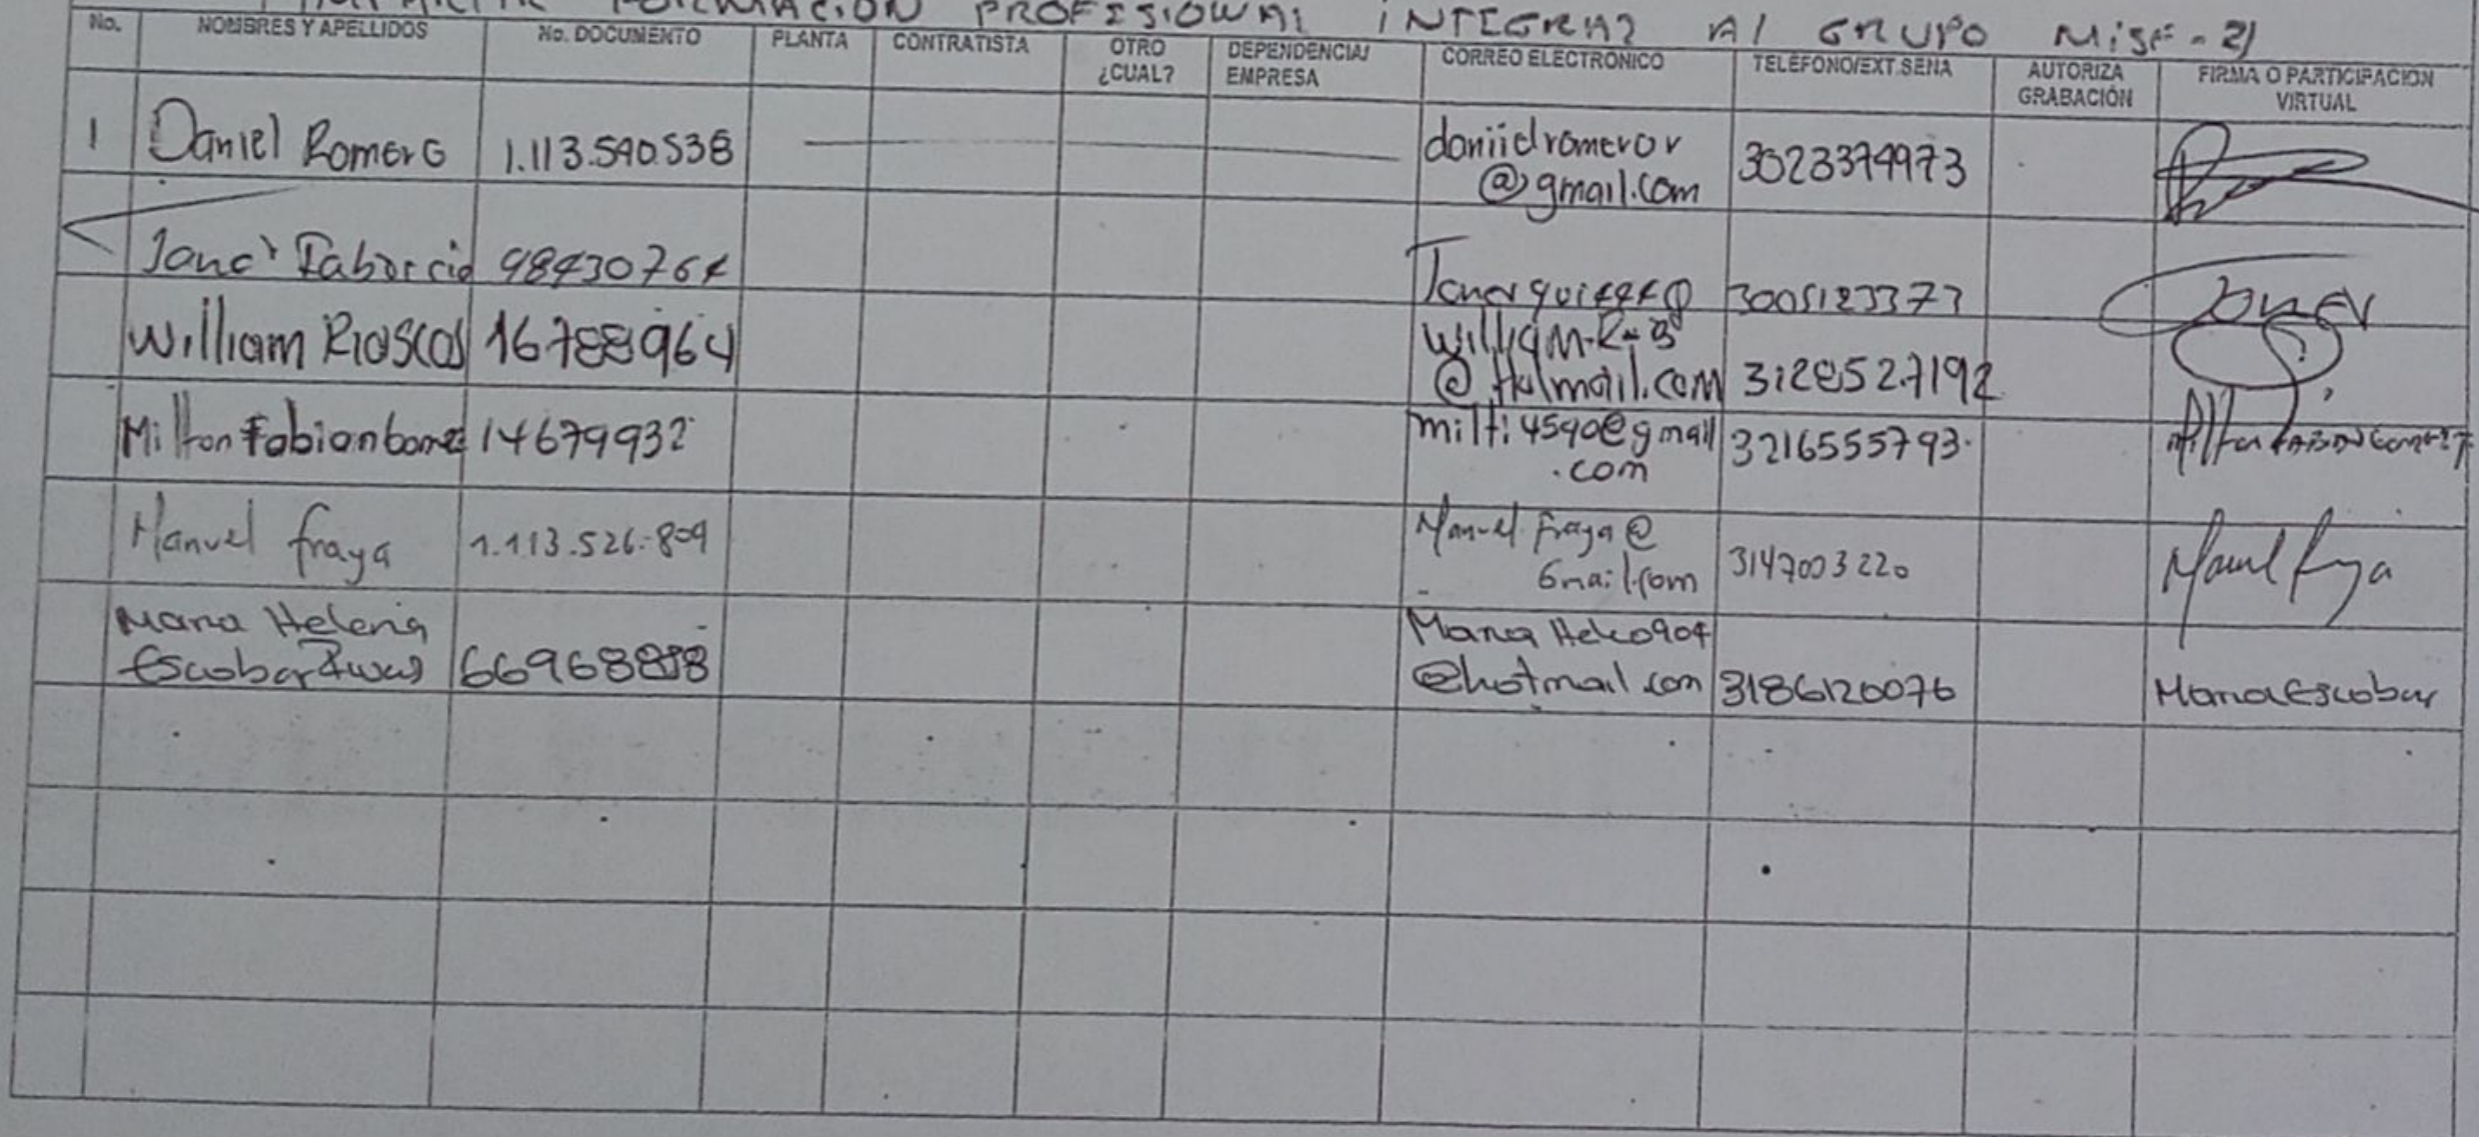 FORMACION PROFESIONAL INTEGRAL Al GRUPO
No. NOMBRES Y APELLIDOS No. DOCUMENTO PLANTA CONTRATISTA OTRO ¿CUAL? DEPENDENCIA/ EMPRESA CORREO ELECTRÓNICO TELÉFONO/EXT.SENA AUTORIZA GRABACIÓN FIRMA O PARTICIPACIÓN VIRTUAL
1 Daniel Romero 1.113.590.538 daniidromerov
@gmail.com 3023379973
3005123377
William Rioscos 16788964
@hotmail.com 3128527192
Milton Fabian Gomez 14679932 milti4590@gmail
.com 3216555793
Manuel fraya 1.113.526.809 Manuel.Fraya@
Gmail.com 3147003220 Manuel Fraya
Maria Helena
Escobar 66968898
@hotmail.com 3186120076 Maria Escobar